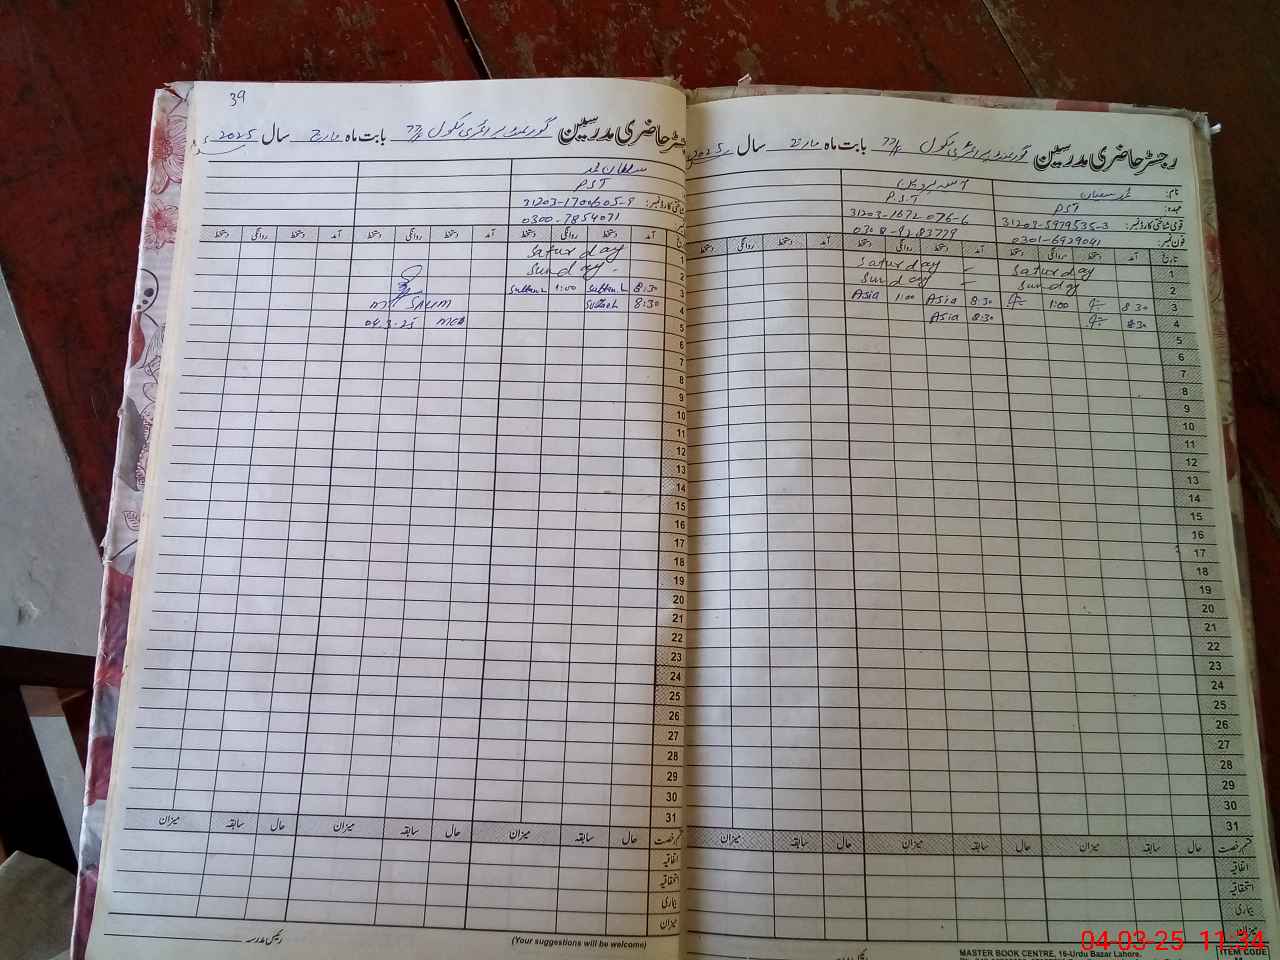 39
رجسٹر حاضری مدرسین گورنمنٹ پرائمری سکول بابت ماہ مارچ سال 2025
سلطان محمد
PST
شناختی کارڈ نمبر: 31203-1700605-9
0300-7854071
آمد دستخط روانگی دستخط آمد دستخط روانگی دستخط آمد دستخط روانگی دستخط
1 Saturday
2 Sunday -
3 8:30 Sultan 1:00 Sultan
4 8:30 Sultan
M. SALIM
04.3.25 MEA
5
6
7
8
9
10
11
12
13
14
15
16
17
18
19
20
21
22
23
24
25
26
27
28
29
30
31
قسم رخصت حال سابقہ میزان حال سابقہ میزان حال سابقہ میزان
اتفاقیہ
استحقاقیہ
بیماری
میزان
(Your suggestions will be welcome)
رئیس مدرسہ
رجسٹر حاضری مدرسین گورنمنٹ پرائمری سکول بابت ماہ مارچ سال 2025
نام:
عہدہ: PST P.S.T
قومی شناختی کارڈ نمبر: 31203-5979535-3 31203-1672076-6
فون نمبر: 0301-6929091 0308-8283779
تاریخ آمد دستخط روانگی دستخط آمد دستخط روانگی دستخط آمد دستخط روانگی دستخط
1 Saturday Saturday
2 Sunday Sunday
3 8 30 1:00 8 30 Asia 1:00 Asia
4 8:30 8:30 Asia
5
6
7
8
9
10
11
12
13
14
15
16
17
18
19
20
21
22
23
24
25
26
27
28
29
30
31
قسم رخصت حال سابقہ میزان حال سابقہ میزان حال سابقہ میزان
اتفاقیہ
استحقاقیہ
بیماری
میزان
MASTER BOOK CENTRE, 16-Urdu Bazar Lahore.
ITEM CODE
04-03-25 11:34